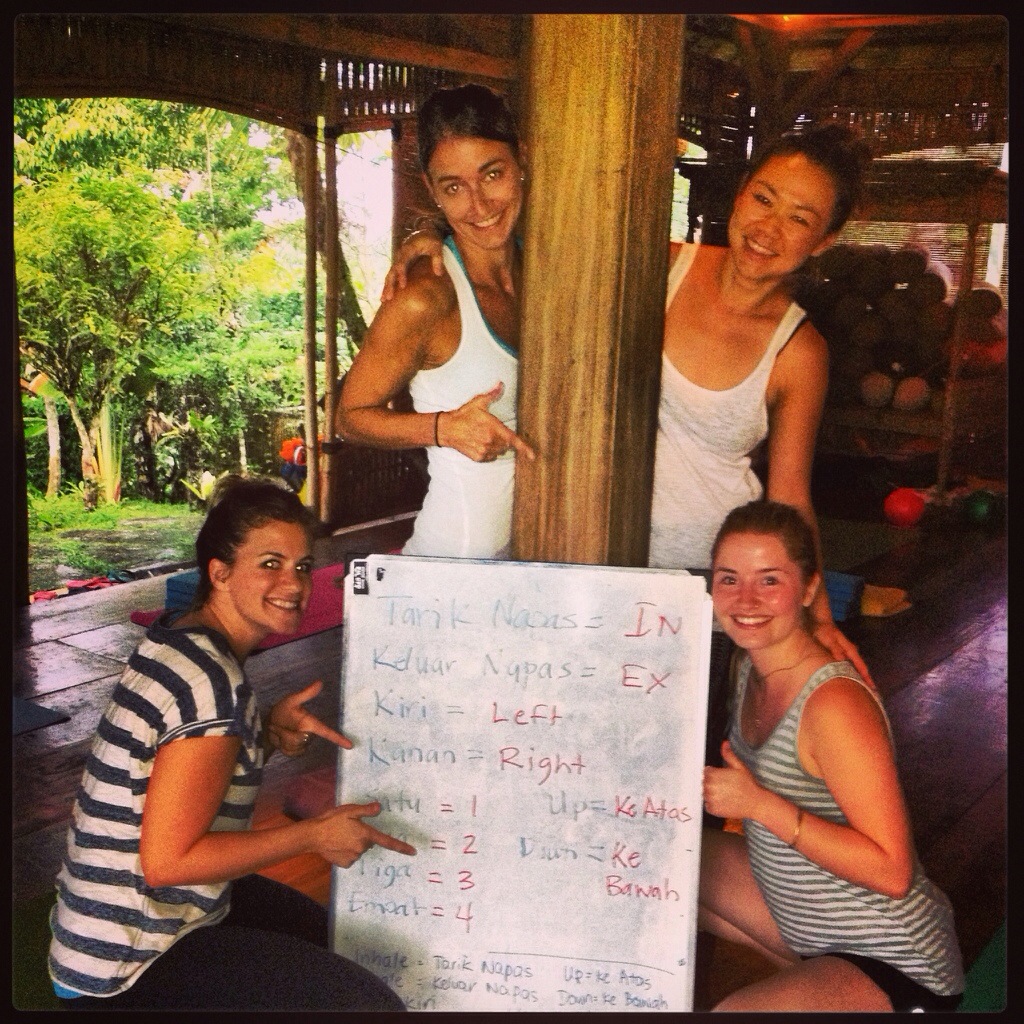 Tarik Napas = IN
Keluar Napas = EX
Kiri = Left
Kanan = Right
Satu = 1 Up = Ke Atas
= 2 Down = Ke Bawah
Tiga = 3
Empat = 4
Inhale = Tarik Napas Up = Ke Atas
= Keluar Napas Down = Ke Bawah
Kiri